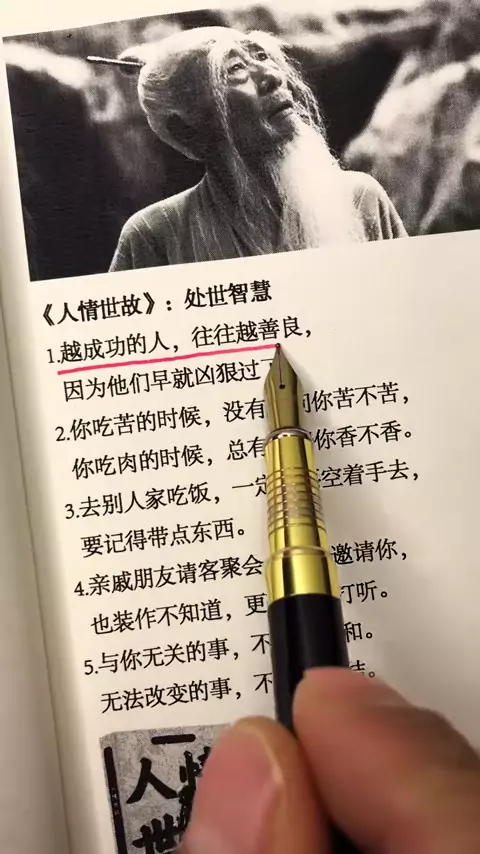 《人情世故》：处世智慧
1.越成功的人，往往越善良，
因为他们早就凶狠过
2.你吃苦的时候，没有 你苦不苦，
你吃肉的时候，总有 你香不香。
3.去别人家吃饭，一定 空着手去，
要记得带点东西。
4.亲戚朋友请客聚会 邀请你，
也装作不知道，更 打听。
5.与你无关的事，不 和。
无法改变的事，不 结。
人情
世